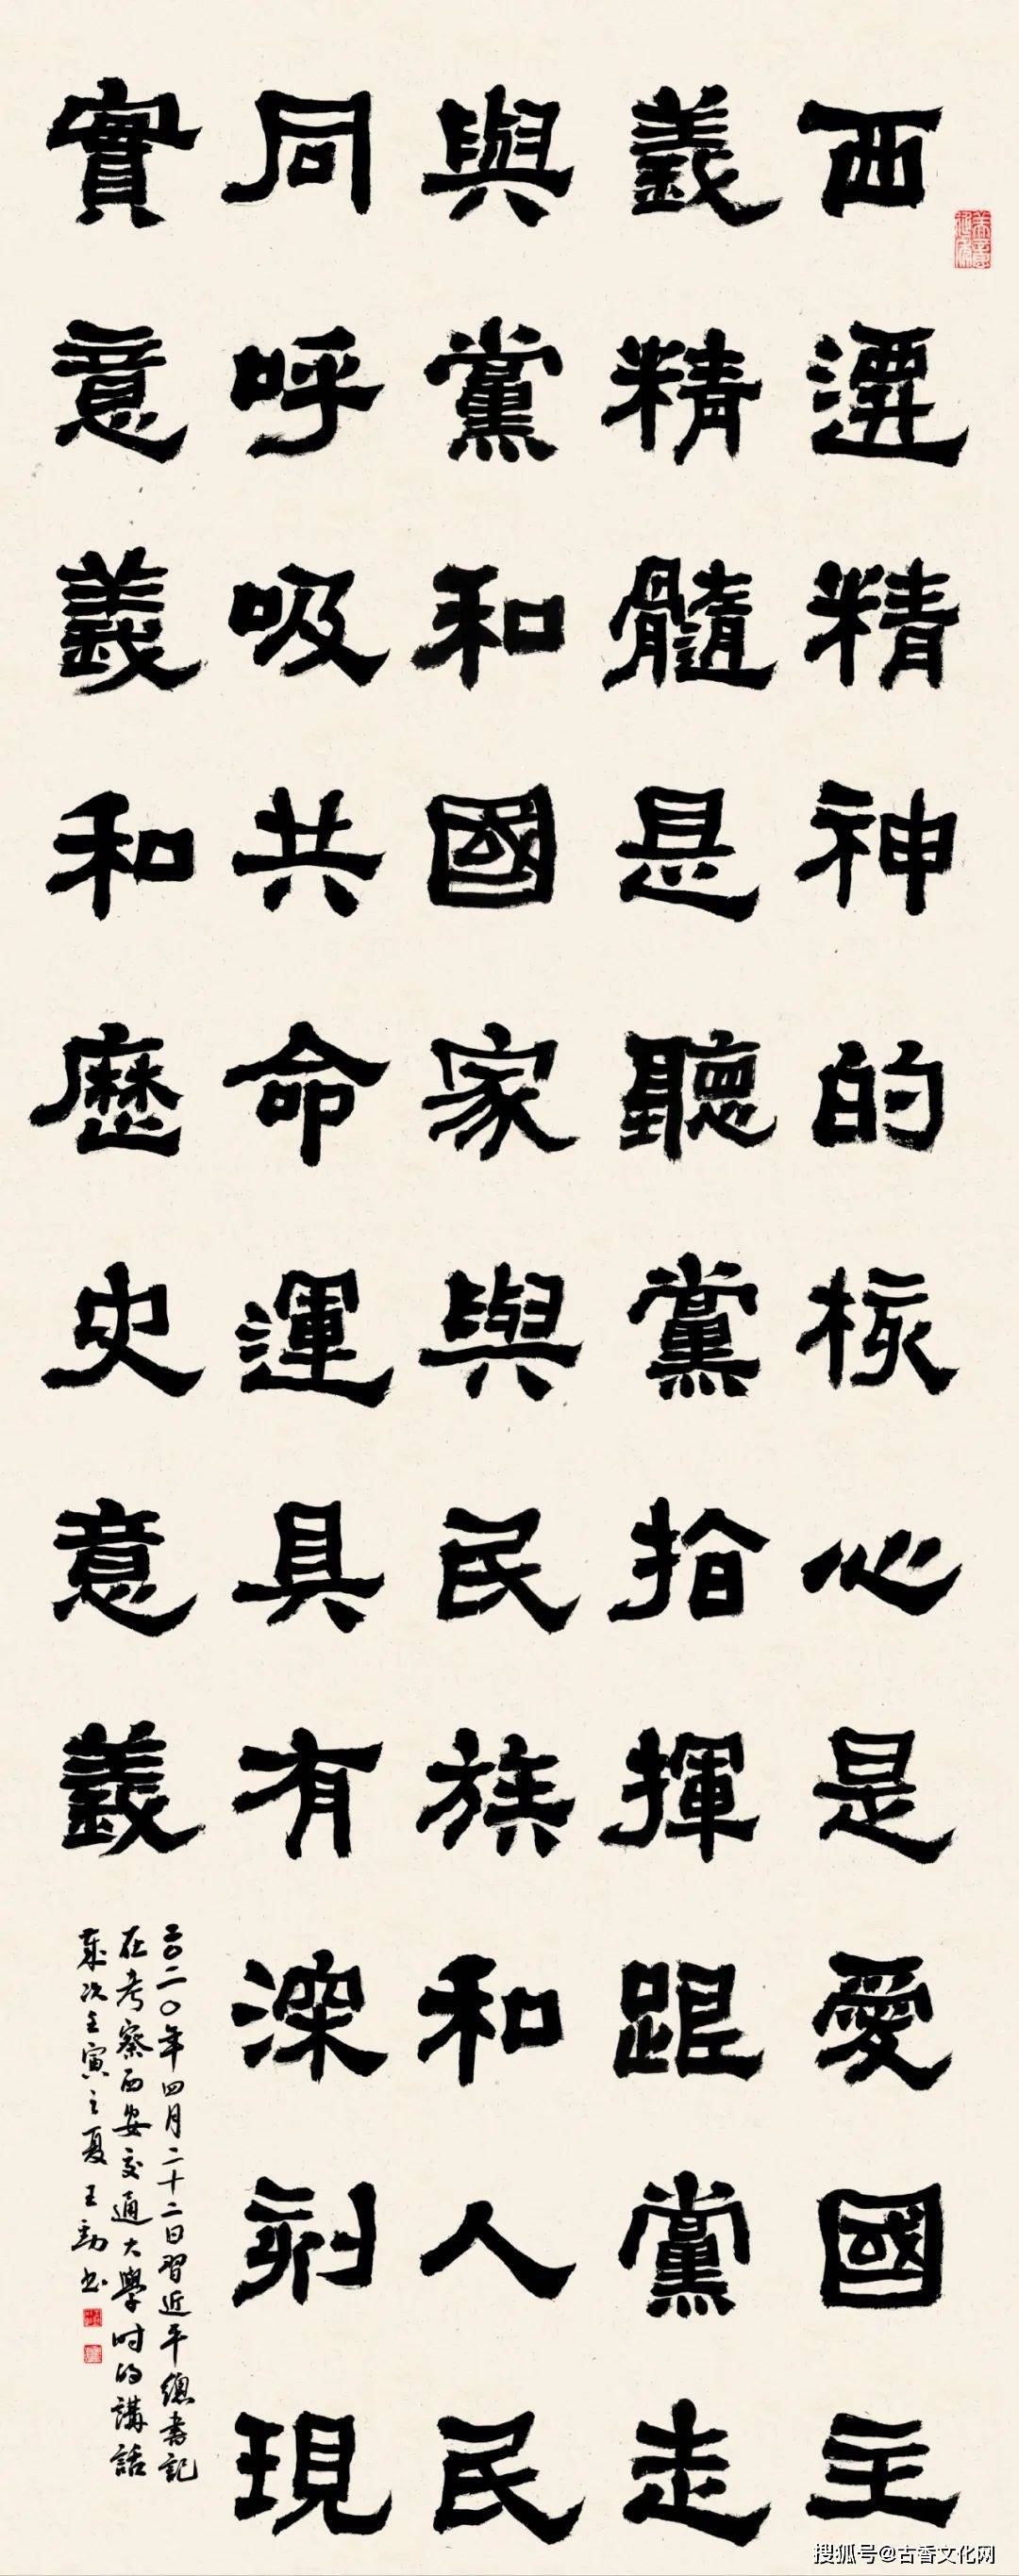 西遷精神的核心是愛國主
義精髓是聽黨指揮跟黨走
與黨和國家與民族和人民
同呼吸共命運具有深刻現
實意義和歷史意義
二〇二〇年四月二十二日習近平總書記
在考察西安交通大學时的講話
歲次壬寅之夏王勁书
搜狐号@古香文化网